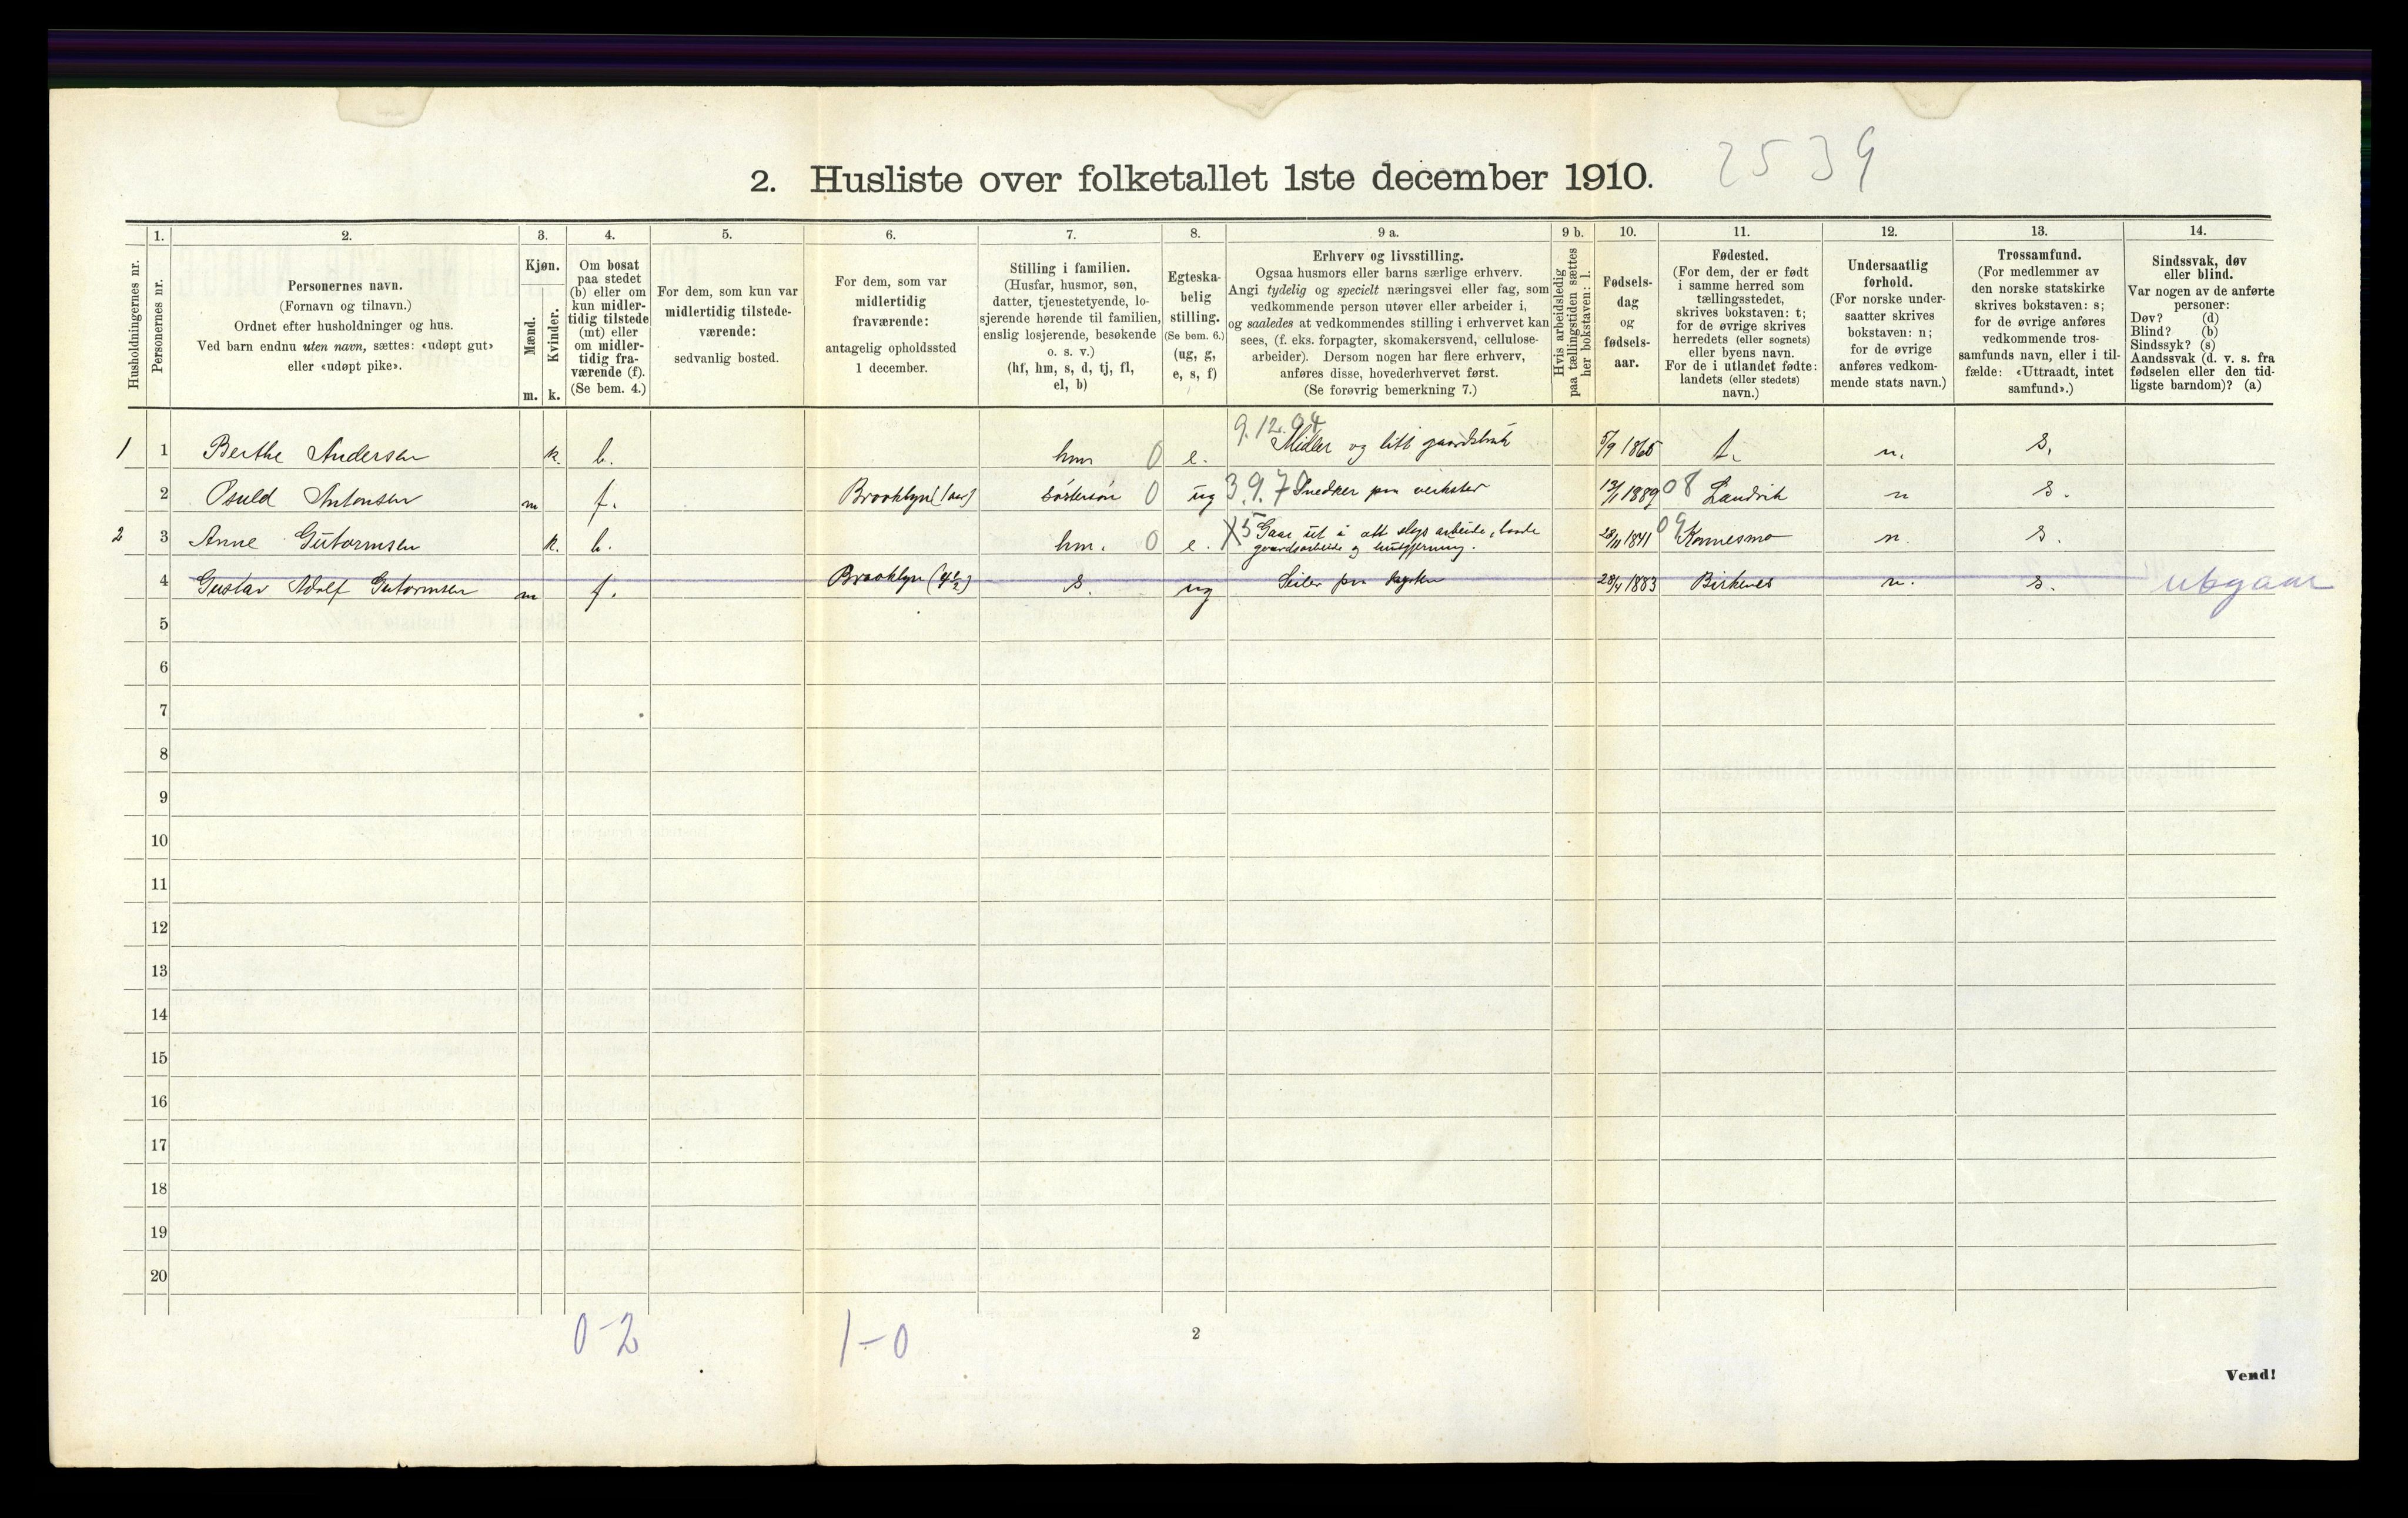 2539
2. Husliste over folketallet 1ste december 1910.
Husholdningernes nr.
1.
Personernes nr.
2.
Personernes navn.
(Fornavn og tilnavn.)
Ordnet efter husholdninger og hus.
Ved barn endnu uten navn, sættes: «udøpt gut»
eller «udøpt pike».
3.
Kjøn.
Mænd.
Kvinder.
m. k.
4.
Om bosat
paa stedet
(b) eller om
kun midler-
tidig tilstede
(mt) eller
om midler-
tidig fra-
værende (f).
(Se bem. 4.)
5.
For dem, som kun var
midlertidig tilstede-
værende:
sedvanlig bosted.
6.
For dem, som var
midlertidig
fraværende:
antagelig opholdssted
1 december.
7.
Stilling i familien.
(Husfar, husmor, søn,
datter, tjenestetyende, lo-
sjerende hørende til familien,
enslig losjerende, besøkende
o. s. v.)
(hf, hm, s, d, tj, fl,
el, b)
8.
Egteska-
belig
stilling.
(Se bem. 6.)
(ug, g,
e, s, f)
9 a.
Erhverv og livsstilling.
Ogsaa husmors eller barns særlige erhverv.
Angi tydelig og specielt næringsvei eller fag, som
vedkommende person utøver eller arbeider i,
og saaledes at vedkommendes stilling i erhvervet kan
sees, (f. eks. forpagter, skomakersvend, cellulose-
arbeider). Dersom nogen har flere erhverv,
anføres disse, hovederhvervet først.
(Se forøvrig bemerkning 7.)
9 b.
Hvis arbeidsledig
paa tællingstiden sættes
her bokstaven: l.
10.
Fødsels-
dag
og
fødsels-
aar.
11.
Fødested.
(For dem, der er født
i samme herred som
tællingsstedet,
skrives bokstaven: t;
for de øvrige skrives
herredets (eller sognets)
eller byens navn.
For de i utlandet fødte:
landets (eller stedets)
navn.)
12.
Undersaatlig
forhold.
(For norske under-
saatter skrives
bokstaven: n;
for de øvrige
anføres vedkom-
mende stats navn.)
13.
Trossamfund.
(For medlemmer av
den norske statskirke
skrives bokstaven: s;
for de øvrige anføres
vedkommende tros-
samfunds navn, eller i til-
fælde: «Uttraadt, intet
samfund».)
14.
Sindssvak, døv
eller blind.
Var nogen av de anførte
personer:
Døv? (d)
Blind? (b)
Sindssyk? (s)
Aandssvak (d. v. s. fra
fødselen eller den tid-
ligste barndom)? (a)
9.12.04
1 1 Berthe Andersen k. b. hm 0 e. Midler og litt gaardsbruk 5/9 1865 t. n. s.
2 Osuld Antonsen m f. Brooklyn søstersøn 0 ug 3.9.7 Snedker paa verksted 13/1 1889 08 Landvik n s.
2 3 Anne Gutormsen k. b. hm. 0 e. X5 Gaar ut i alt slags arbeide, baade
gaardsarbeide og husgjerning. 28/11 1841 09 Konnesmo n. s.
4 Gustav Adolf Gutormsen m f. Brooklyn s. ug Seiler paa kysten 28/4 1883 Birkenes n. s. utgaar
5
6
7
8
9
10
11
12
13
14
15
16
17
18
19
20
0-2 1-0
2
Vend!